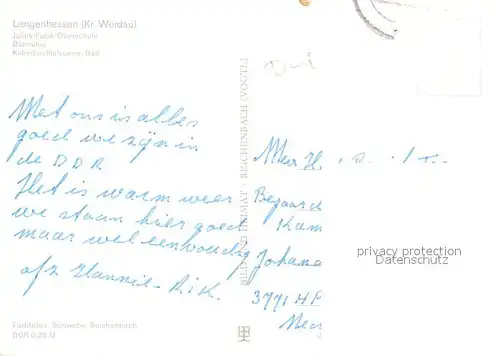 Langenhessen (Kr. Werdau)
Julius-Fučik-Oberschule
Koberbachtalsperre, Bad
Met ons is alles
goed we zijn in
de DDR
Het is warm weer
we staan hier goed
maar wel eenvoudig
afz Hannie - Rik.
Farbfotos: Schwebe, Reichenbach
DDR 0,20 M
BILD UND HEIMAT · REICHENBACH (VOGTL)
Mevr H.
Bejaard
Kam
Johana
3771 HF
privacy protection
Datenschutz